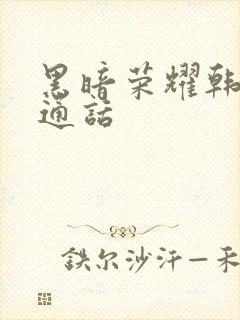 黑暗荣耀韩
通话
鉄尔沙汗—禾